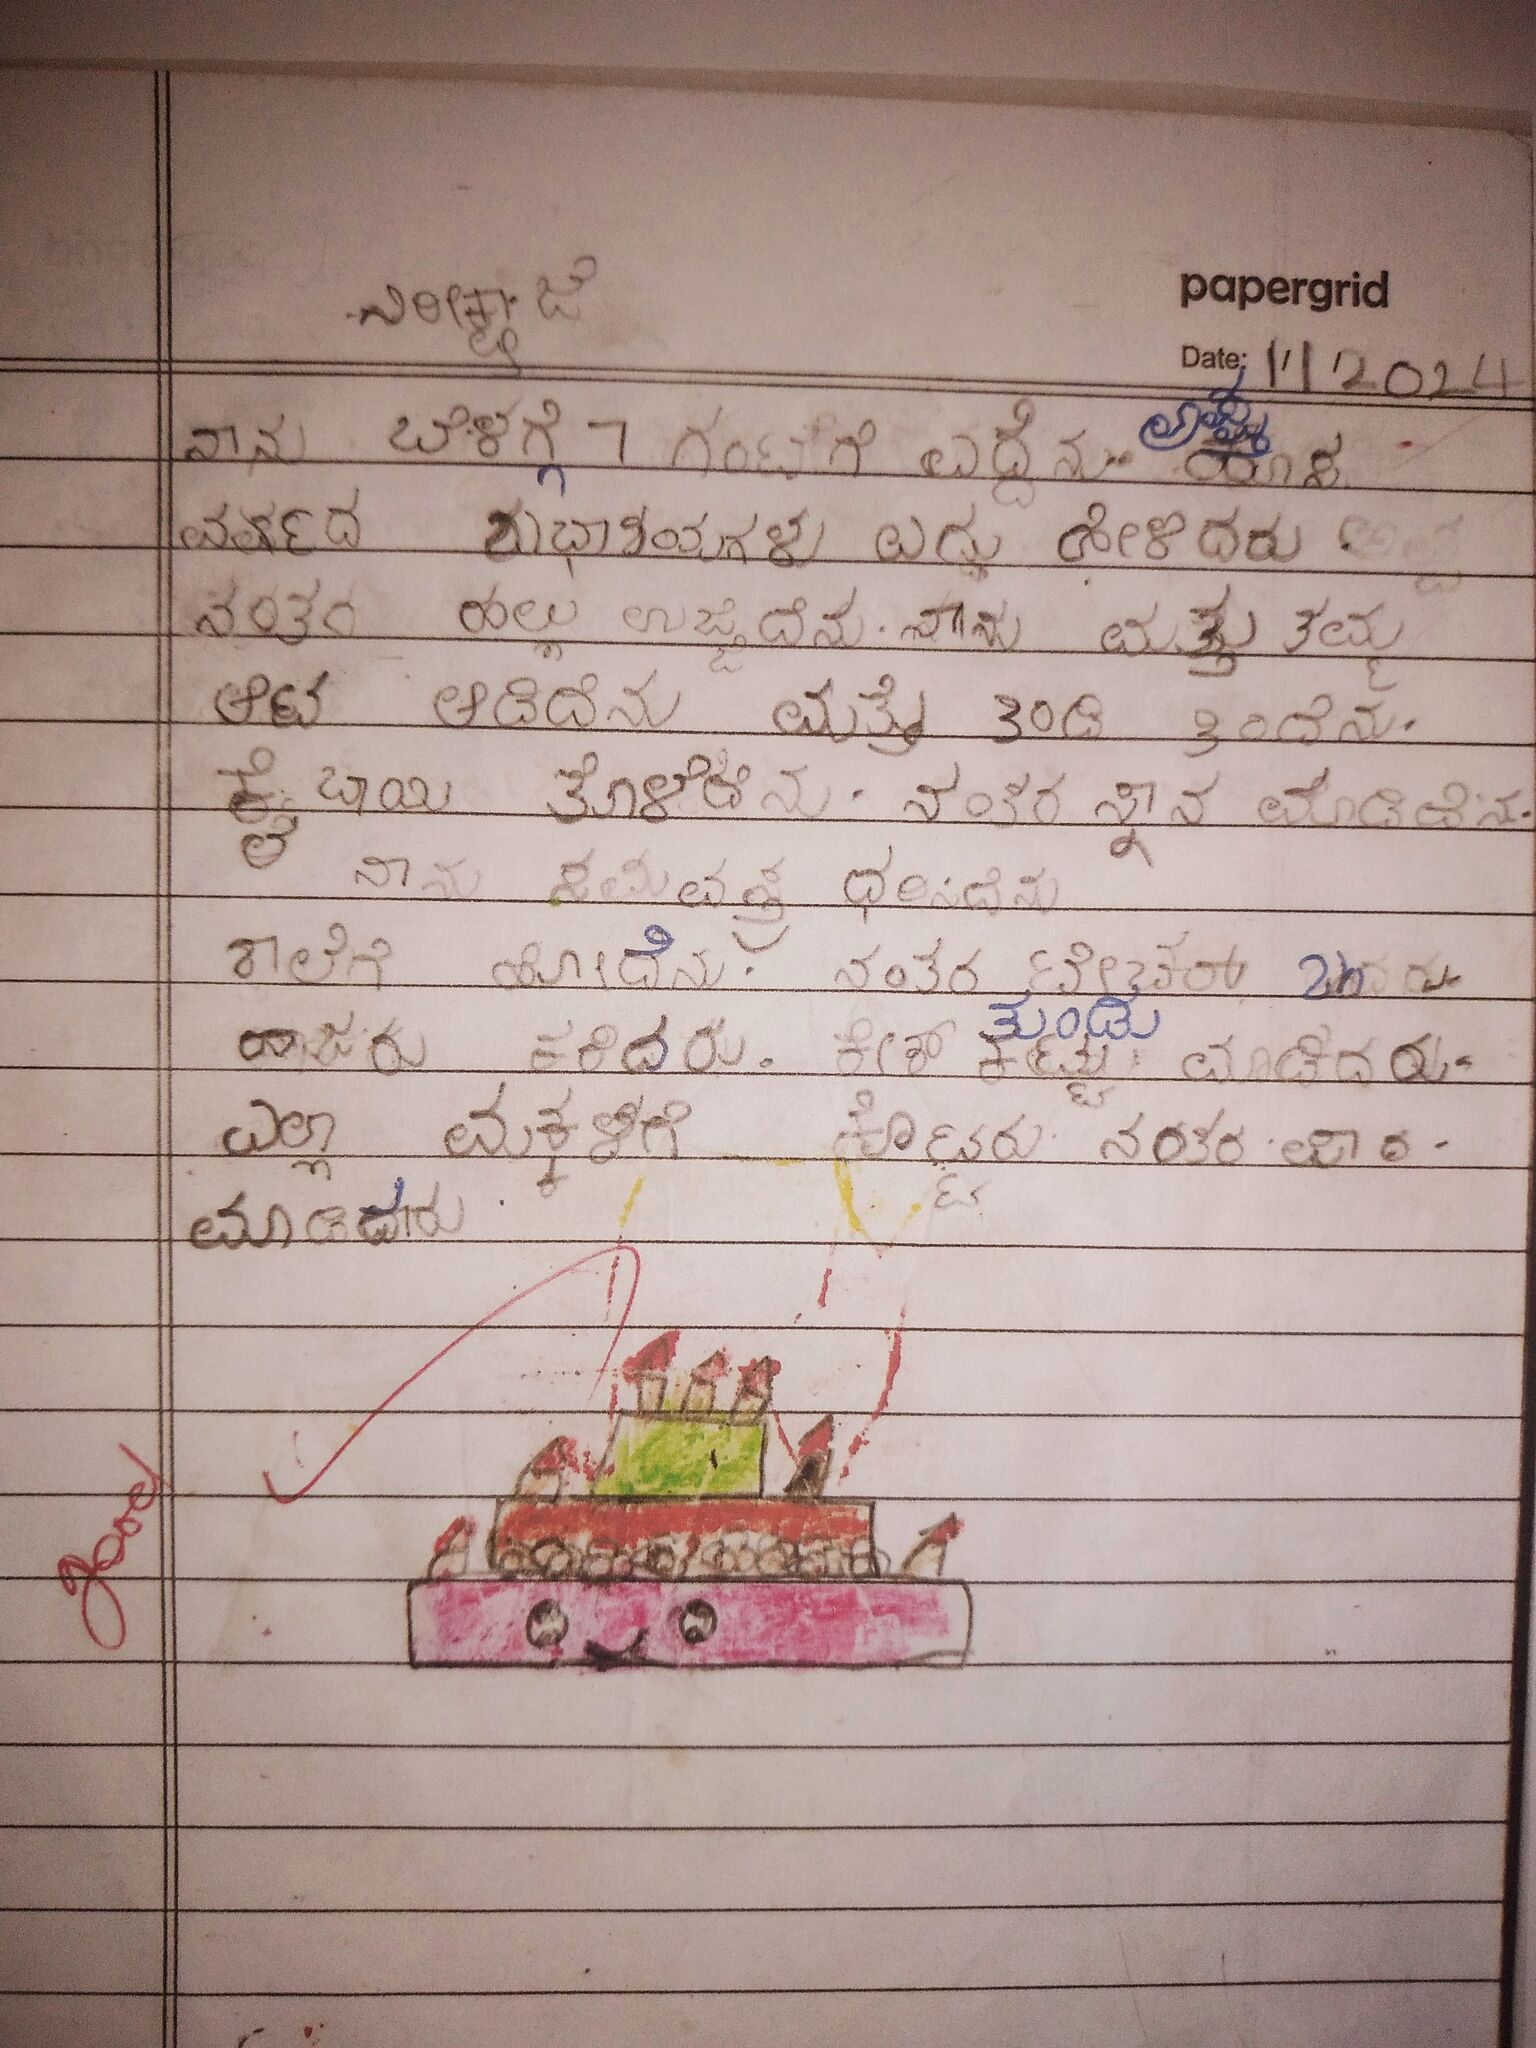 papergrid
Date: 1/1/2024
ನಾನು ಬೆಳಗ್ಗೆ 7 ಗಂಟೆಗೆ ಎದ್ದೆನು.
ವರ್ಷದ ಶುಭಾಶಯಗಳು ಎದ್ದು ಹೇಳಿದರು.
ನಂತರ ಹಲ್ಲು ಉಜ್ಜಿದೆನು. ನಾನು ಮತ್ತು ತಮ್ಮ
ಆಟ ಆಡಿದೆನು ಮತ್ತೆ ತಂಡಿ ತಿಂದೆನು.
ಕೈ ಬಾಯಿ ತೊಳೆದೆನು. ನಂತರ ಸ್ನಾನ ಮಾಡಿದೆನು.
ನಾನು ಸಮವಸ್ತ್ರ ಧರಿಸಿದೆನು
ಶಾಲೆಗೆ ಹೋದೆನು. ನಂತರ ಟೀಚರ್
ಹಾಜರು ಕರೆದರು. ಕೇಕ್ ತುಂಡು ಮಾಡಿದರು.
ಎಲ್ಲಾ ಮಕ್ಕಳಿಗೆ ಕೊಟ್ಟರು ನಂತರ ಪಾಠ.
ಮಾಡಿದರು.
good